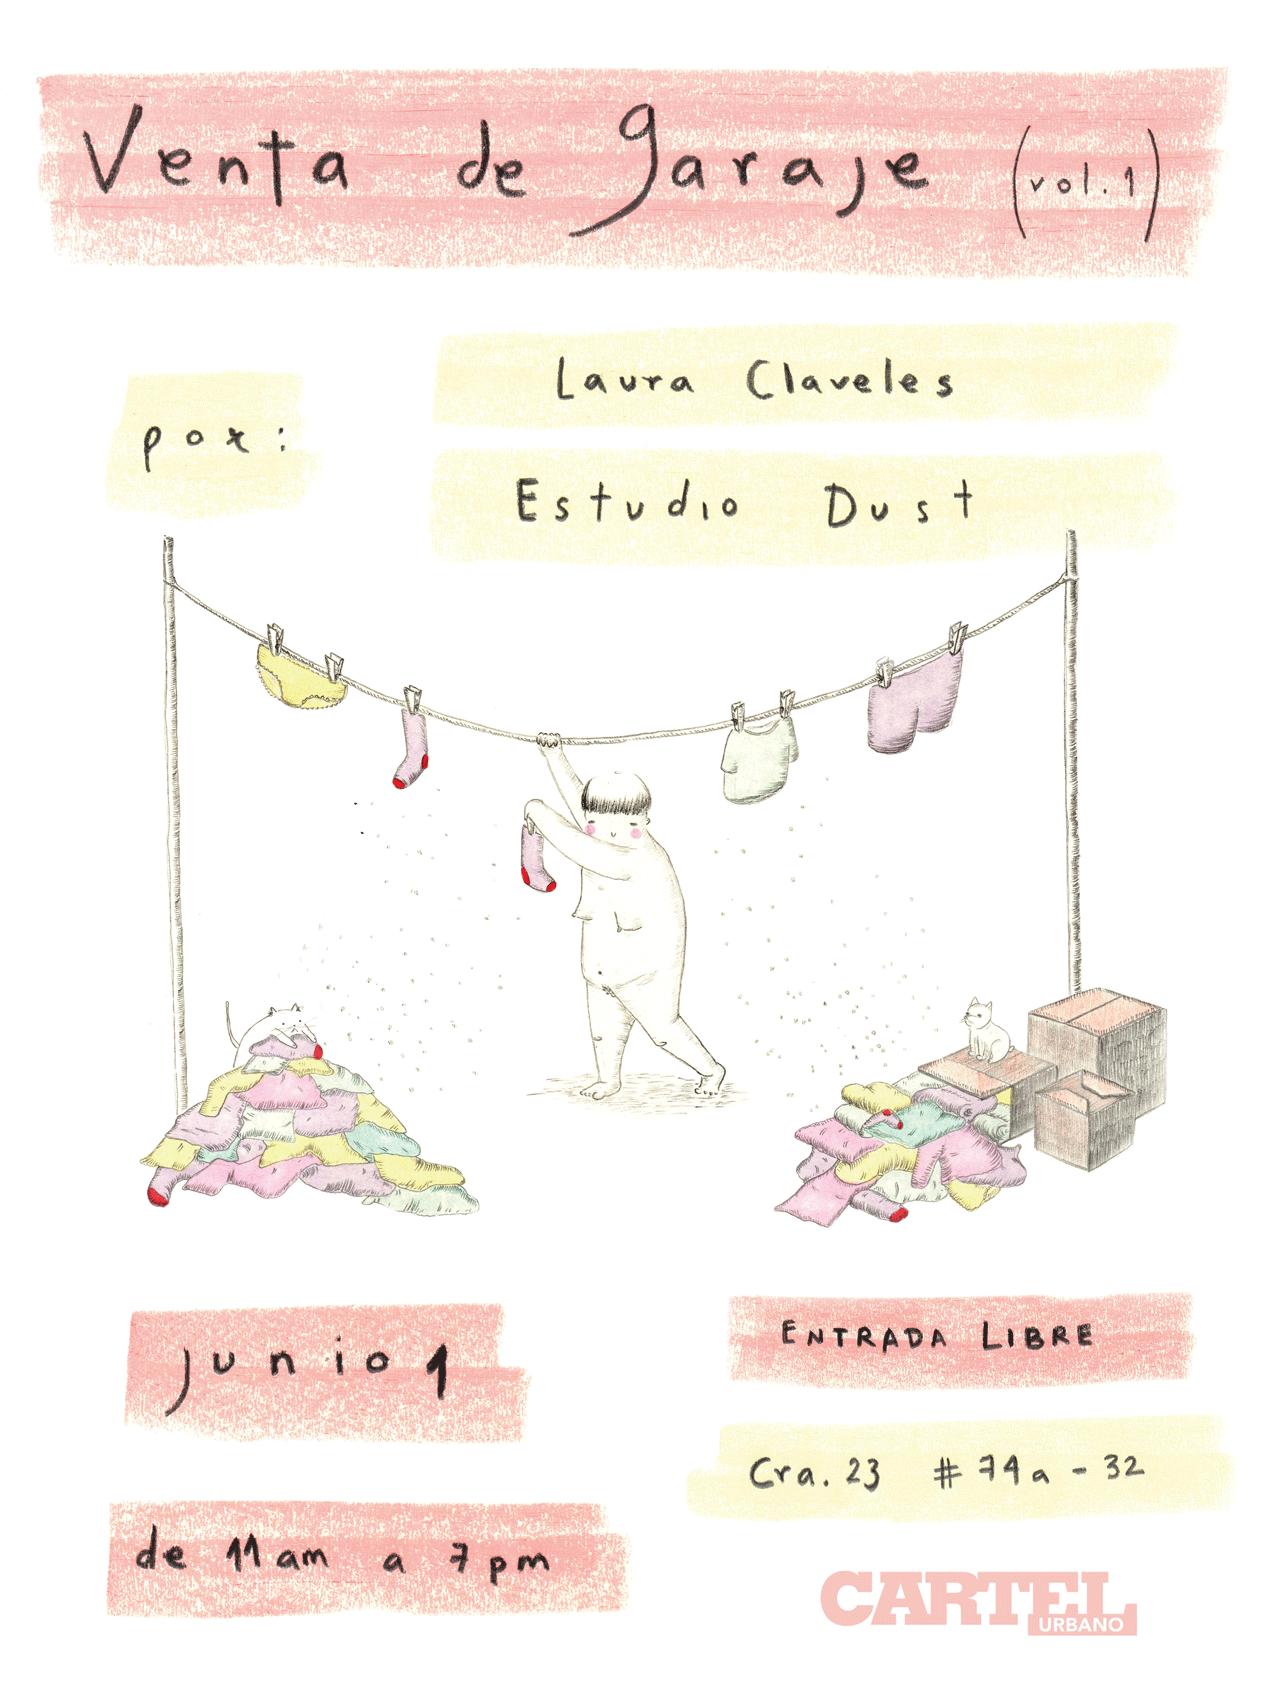 Venta de garaje (vol. 1)
por:
Laura Claveles
Estudio Dust
junio 1
de 11 am a 7 pm
ENTRADA LIBRE
Cra. 23 # 74a - 32
CARTEL
URBANO